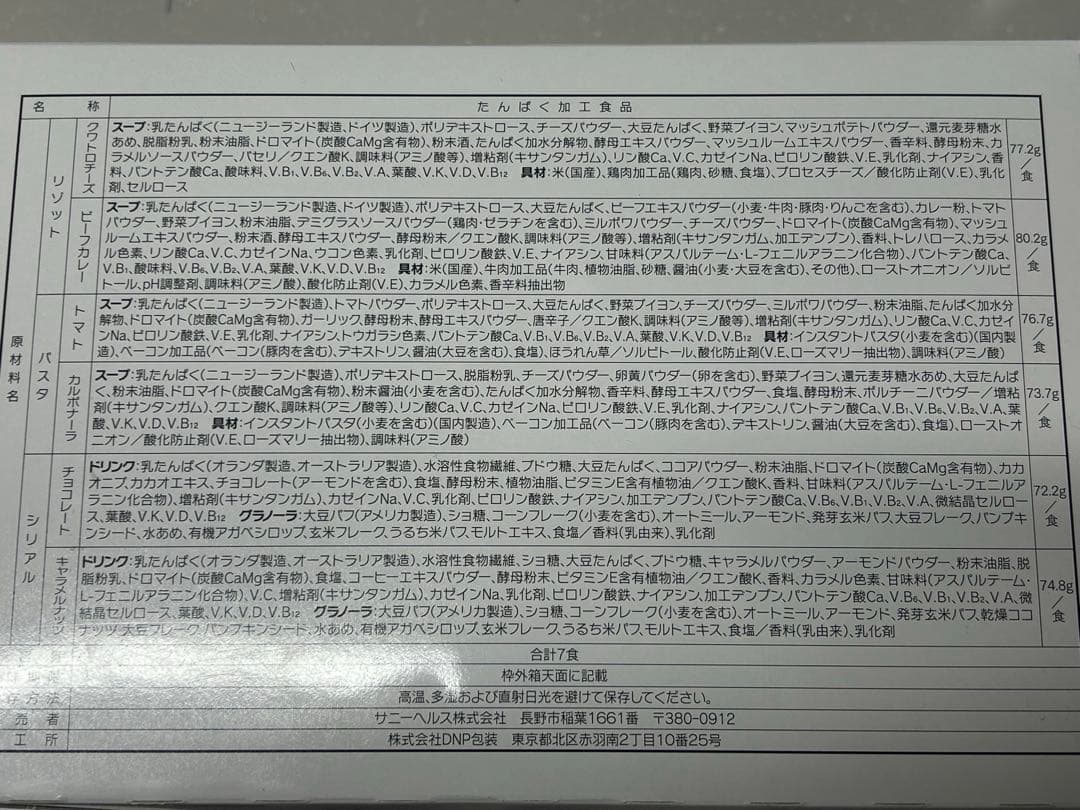 名称 たんぱく加工食品
原材料名
リゾット
クワトロチーズ
スープ:乳たんぱく(ニュージーランド製造、ドイツ製造)、ポリデキストロース、チーズパウダー、大豆たんぱく、野菜ブイヨン、マッシュポテトパウダー、還元麦芽糖水
あめ、脱脂粉乳、粉末油脂、ドロマイト(炭酸CaMg含有物)、粉末酒、たんぱく加水分解物、酵母エキスパウダー、マッシュルームエキスパウダー、香辛料、酵母粉末、カ
ラメルソースパウダー、パセリ/クエン酸K、調味料(アミノ酸等)、増粘剤(キサンタンガム)、リン酸Ca、V.C、カゼインNa、ピロリン酸鉄、V.E、乳化剤、ナイアシン、香
料、パントテン酸Ca、酸味料、V.B1、V.B6、V.B2、V.A、葉酸、V.K、V.D、V.B12 具材:米(国産)、鶏肉加工品(鶏肉、砂糖、食塩)、プロセスチーズ/酸化防止剤(V.E)、乳化
剤、セルロース
77.2g/食
ビーフカレー
スープ:乳たんぱく(ニュージーランド製造、ドイツ製造)、ポリデキストロース、大豆たんぱく、ビーフエキスパウダー(小麦・牛肉・豚肉・りんごを含む)、カレー粉、トマト
パウダー、野菜ブイヨン、粉末油脂、デミグラスソースパウダー(鶏肉・ゼラチンを含む)、ミルポワパウダー、チーズパウダー、ドロマイト(炭酸CaMg含有物)、マッシュ
ルームエキスパウダー、粉末酒、酵母エキスパウダー、酵母粉末/クエン酸K、調味料(アミノ酸等)、増粘剤(キサンタンガム、加工デンプン)、香料、トレハロース、カラメ
ル色素、リン酸Ca、V.C、カゼインNa、ウコン色素、乳化剤、ピロリン酸鉄、V.E、ナイアシン、甘味料(アスパルテーム・L-フェニルアラニン化合物)、パントテン酸Ca、
V.B1、酸味料、V.B6、V.B2、V.A、葉酸、V.K、V.D、V.B12 具材:米(国産)、牛肉加工品(牛肉、植物油脂、砂糖、醤油(小麦・大豆を含む)、その他)、ローストオニオン/ソルビ
トール、pH調整剤、調味料(アミノ酸)、酸化防止剤(V.E)、カラメル色素、香辛料抽出物
80.2g/食
パスタ
トマト
スープ:乳たんぱく(ニュージーランド製造)、トマトパウダー、ポリデキストロース、大豆たんぱく、野菜ブイヨン、チーズパウダー、ミルポワパウダー、粉末油脂、たんぱく加水分
解物、ドロマイト(炭酸CaMg含有物)、ガーリック、酵母粉末、酵母エキスパウダー、唐辛子/クエン酸K、調味料(アミノ酸等)、増粘剤(キサンタンガム)、リン酸Ca、V.C、カゼイ
ンNa、ピロリン酸鉄、V.E、乳化剤、ナイアシン、トウガラシ色素、パントテン酸Ca、V.B1、V.B6、V.B2、V.A、葉酸、V.K、V.D、V.B12 具材:インスタントパスタ(小麦を含む)(国内製
造)、ベーコン加工品(ベーコン(豚肉を含む)、デキストリン、醤油(大豆を含む)、食塩)、ほうれん草/ソルビトール、酸化防止剤(V.E、ローズマリー抽出物)、調味料(アミノ酸)
76.7g/食
カルボナーラ
スープ:乳たんぱく(ニュージーランド製造)、ポリデキストロース、脱脂粉乳、チーズパウダー、卵黄パウダー(卵を含む)、野菜ブイヨン、還元麦芽糖水あめ、大豆たんぱ
く、粉末油脂、ドロマイト(炭酸CaMg含有物)、粉末醤油(小麦を含む)、たんぱく加水分解物、香辛料、酵母エキスパウダー、食塩、酵母粉末、ポルチーニパウダー/増粘
剤(キサンタンガム)、クエン酸K、調味料(アミノ酸等)、リン酸Ca、V.C、カゼインNa、ピロリン酸鉄、V.E、乳化剤、ナイアシン、パントテン酸Ca、V.B1、V.B6、V.B2、V.A、葉
酸、V.K、V.D、V.B12 具材:インスタントパスタ(小麦を含む)(国内製造)、ベーコン加工品(ベーコン(豚肉を含む)、デキストリン、醤油(大豆を含む)、食塩)、ローストオ
ニオン/酸化防止剤(V.E、ローズマリー抽出物)、調味料(アミノ酸)
73.7g/食
シリアル
チョコレート
ドリンク:乳たんぱく(オランダ製造、オーストラリア製造)、水溶性食物繊維、ブドウ糖、大豆たんぱく、ココアパウダー、粉末油脂、ドロマイト(炭酸CaMg含有物)、カカ
オニブ、カカオエキス、チョコレート(アーモンドを含む)、食塩、酵母粉末、植物油脂、ビタミンE含有植物油/クエン酸K、香料、甘味料(アスパルテーム・L-フェニルア
ラニン化合物)、増粘剤(キサンタンガム)、カゼインNa、V.C、乳化剤、ピロリン酸鉄、ナイアシン、加工デンプン、パントテン酸Ca、V.B6、V.B1、V.B2、V.A、微結晶セルロー
ス、葉酸、V.K、V.D、V.B12 グラノーラ:大豆パフ(アメリカ製造)、ショ糖、コーンフレーク(小麦を含む)、オートミール、アーモンド、発芽玄米パフ、大豆フレーク、パンプキ
ンシード、水あめ、有機アガベシロップ、玄米フレーク、うるち米パフ、モルトエキス、食塩/香料(乳由来)、乳化剤
72.2g/食
キャラメルナッツ
ドリンク:乳たんぱく(オランダ製造、オーストラリア製造)、水溶性食物繊維、ショ糖、大豆たんぱく、ブドウ糖、キャラメルパウダー、アーモンドパウダー、粉末油脂、脱
脂粉乳、ドロマイト(炭酸CaMg含有物)、食塩、コーヒーエキスパウダー、酵母粉末、ビタミンE含有植物油/クエン酸K、香料、カラメル色素、甘味料(アスパルテーム・
L-フェニルアラニン化合物)、V.C、増粘剤(キサンタンガム)、カゼインNa、乳化剤、ピロリン酸鉄、ナイアシン、加工デンプン、パントテン酸Ca、V.B6、V.B1、V.B2、V.A、微
結晶セルロース、葉酸、V.K、V.D、V.B12 グラノーラ:大豆パフ(アメリカ製造)、ショ糖、コーンフレーク(小麦を含む)、オートミール、アーモンド、発芽玄米パフ、乾燥ココ
ナッツ、大豆フレーク、パンプキンシード、水あめ、有機アガベシロップ、玄米フレーク、うるち米パフ、モルトエキス、食塩/香料(乳由来)、乳化剤
74.8g/食
合計7食
枠外箱天面に記載
方法 高温、多湿および直射日光を避けて保存してください。
売者 サニーヘルス株式会社 長野市稲葉1661番 〒380-0912
工所 株式会社DNP包装 東京都北区赤羽南2丁目10番25号